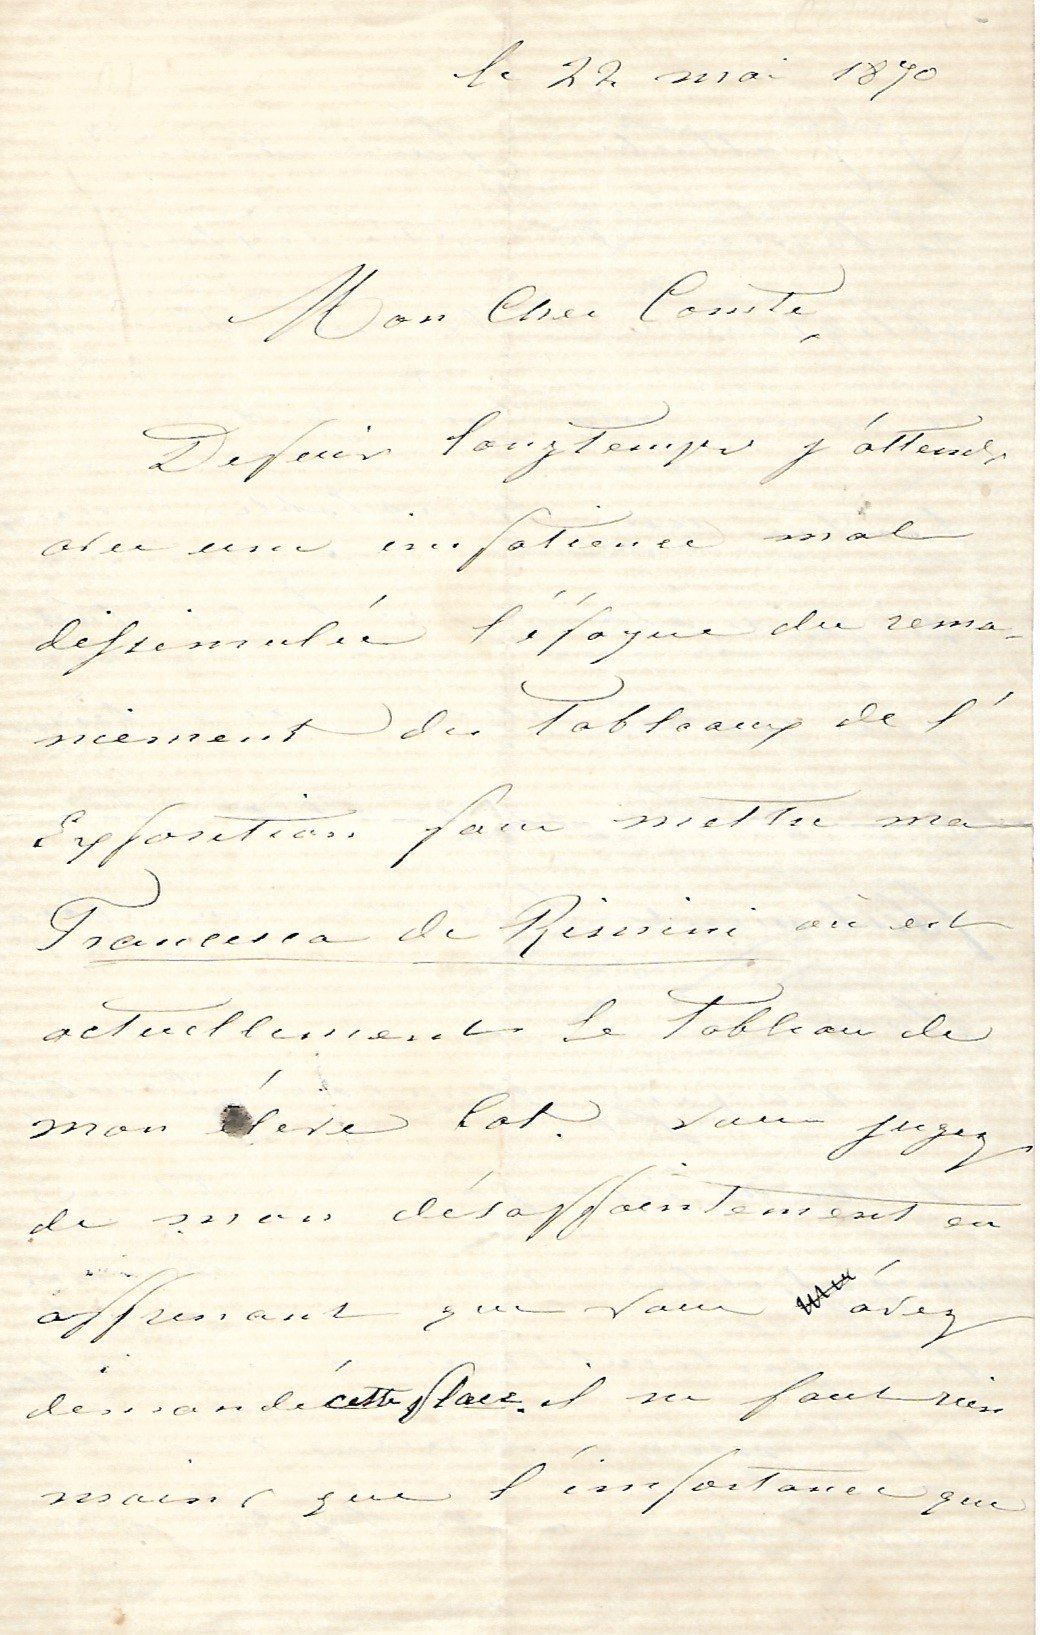 le 22 mai 1870
Mon Cher Comte,
Depuis longtemps j'attends
avec une impatience mal
dissimulée l'époque du rema-
niement des Tableaux de l'
Exposition pour mettre ma
Francesca de Rimini où est
actuellement le Tableau de
mon élève Cot. vous jugez
de mon désappointement en
apprenant que vous avez
demandé cette place. il ne faut rien
moins que l'importance que